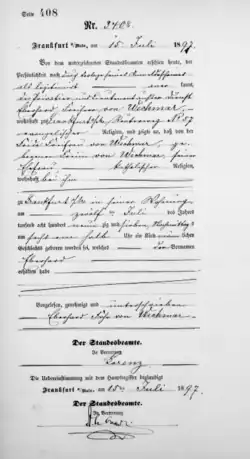 Seite 408
Nr. 3408.
Frankfurt a/Main, am 15 Juli 1897
Vor dem unterzeichneten Standesbeamten erschien heute, der
Persönlichkeit nach durch
als legitimiert kannt,
der
Eberhard Freiherr von Wechmar,
wohnhaft Frankfurt a/M. No 57
evangelischer Religion, und zeigte an, daß von der
Freifrau von Wechmar, ge-
borenen von Wechmar, seiner
Ehefrau katholischer Religion,
wohnhaft bei ihm
zu Frankfurt a/M. in seiner Wohnung
am zwölften Juli des Jahres
tausend acht hundert neunzig und sieben, Nachmittags
um sechs ein halb Uhr ein Kind männlichen
Geschlechts geboren worden sei, welches den Vornamen
Eberhard
erhalten habe
Vorgelesen, genehmigt und unterschrieben
Eberhard Frhr von Wechmar.
Der Standesbeamte.
In Vertretung
Lorenz
Die Uebereinstimmung mit dem Hauptregister beglaubigt
Frankfurt a/Main, am 15 Juli 1897.
Der Standesbeamte.
In Vertretung